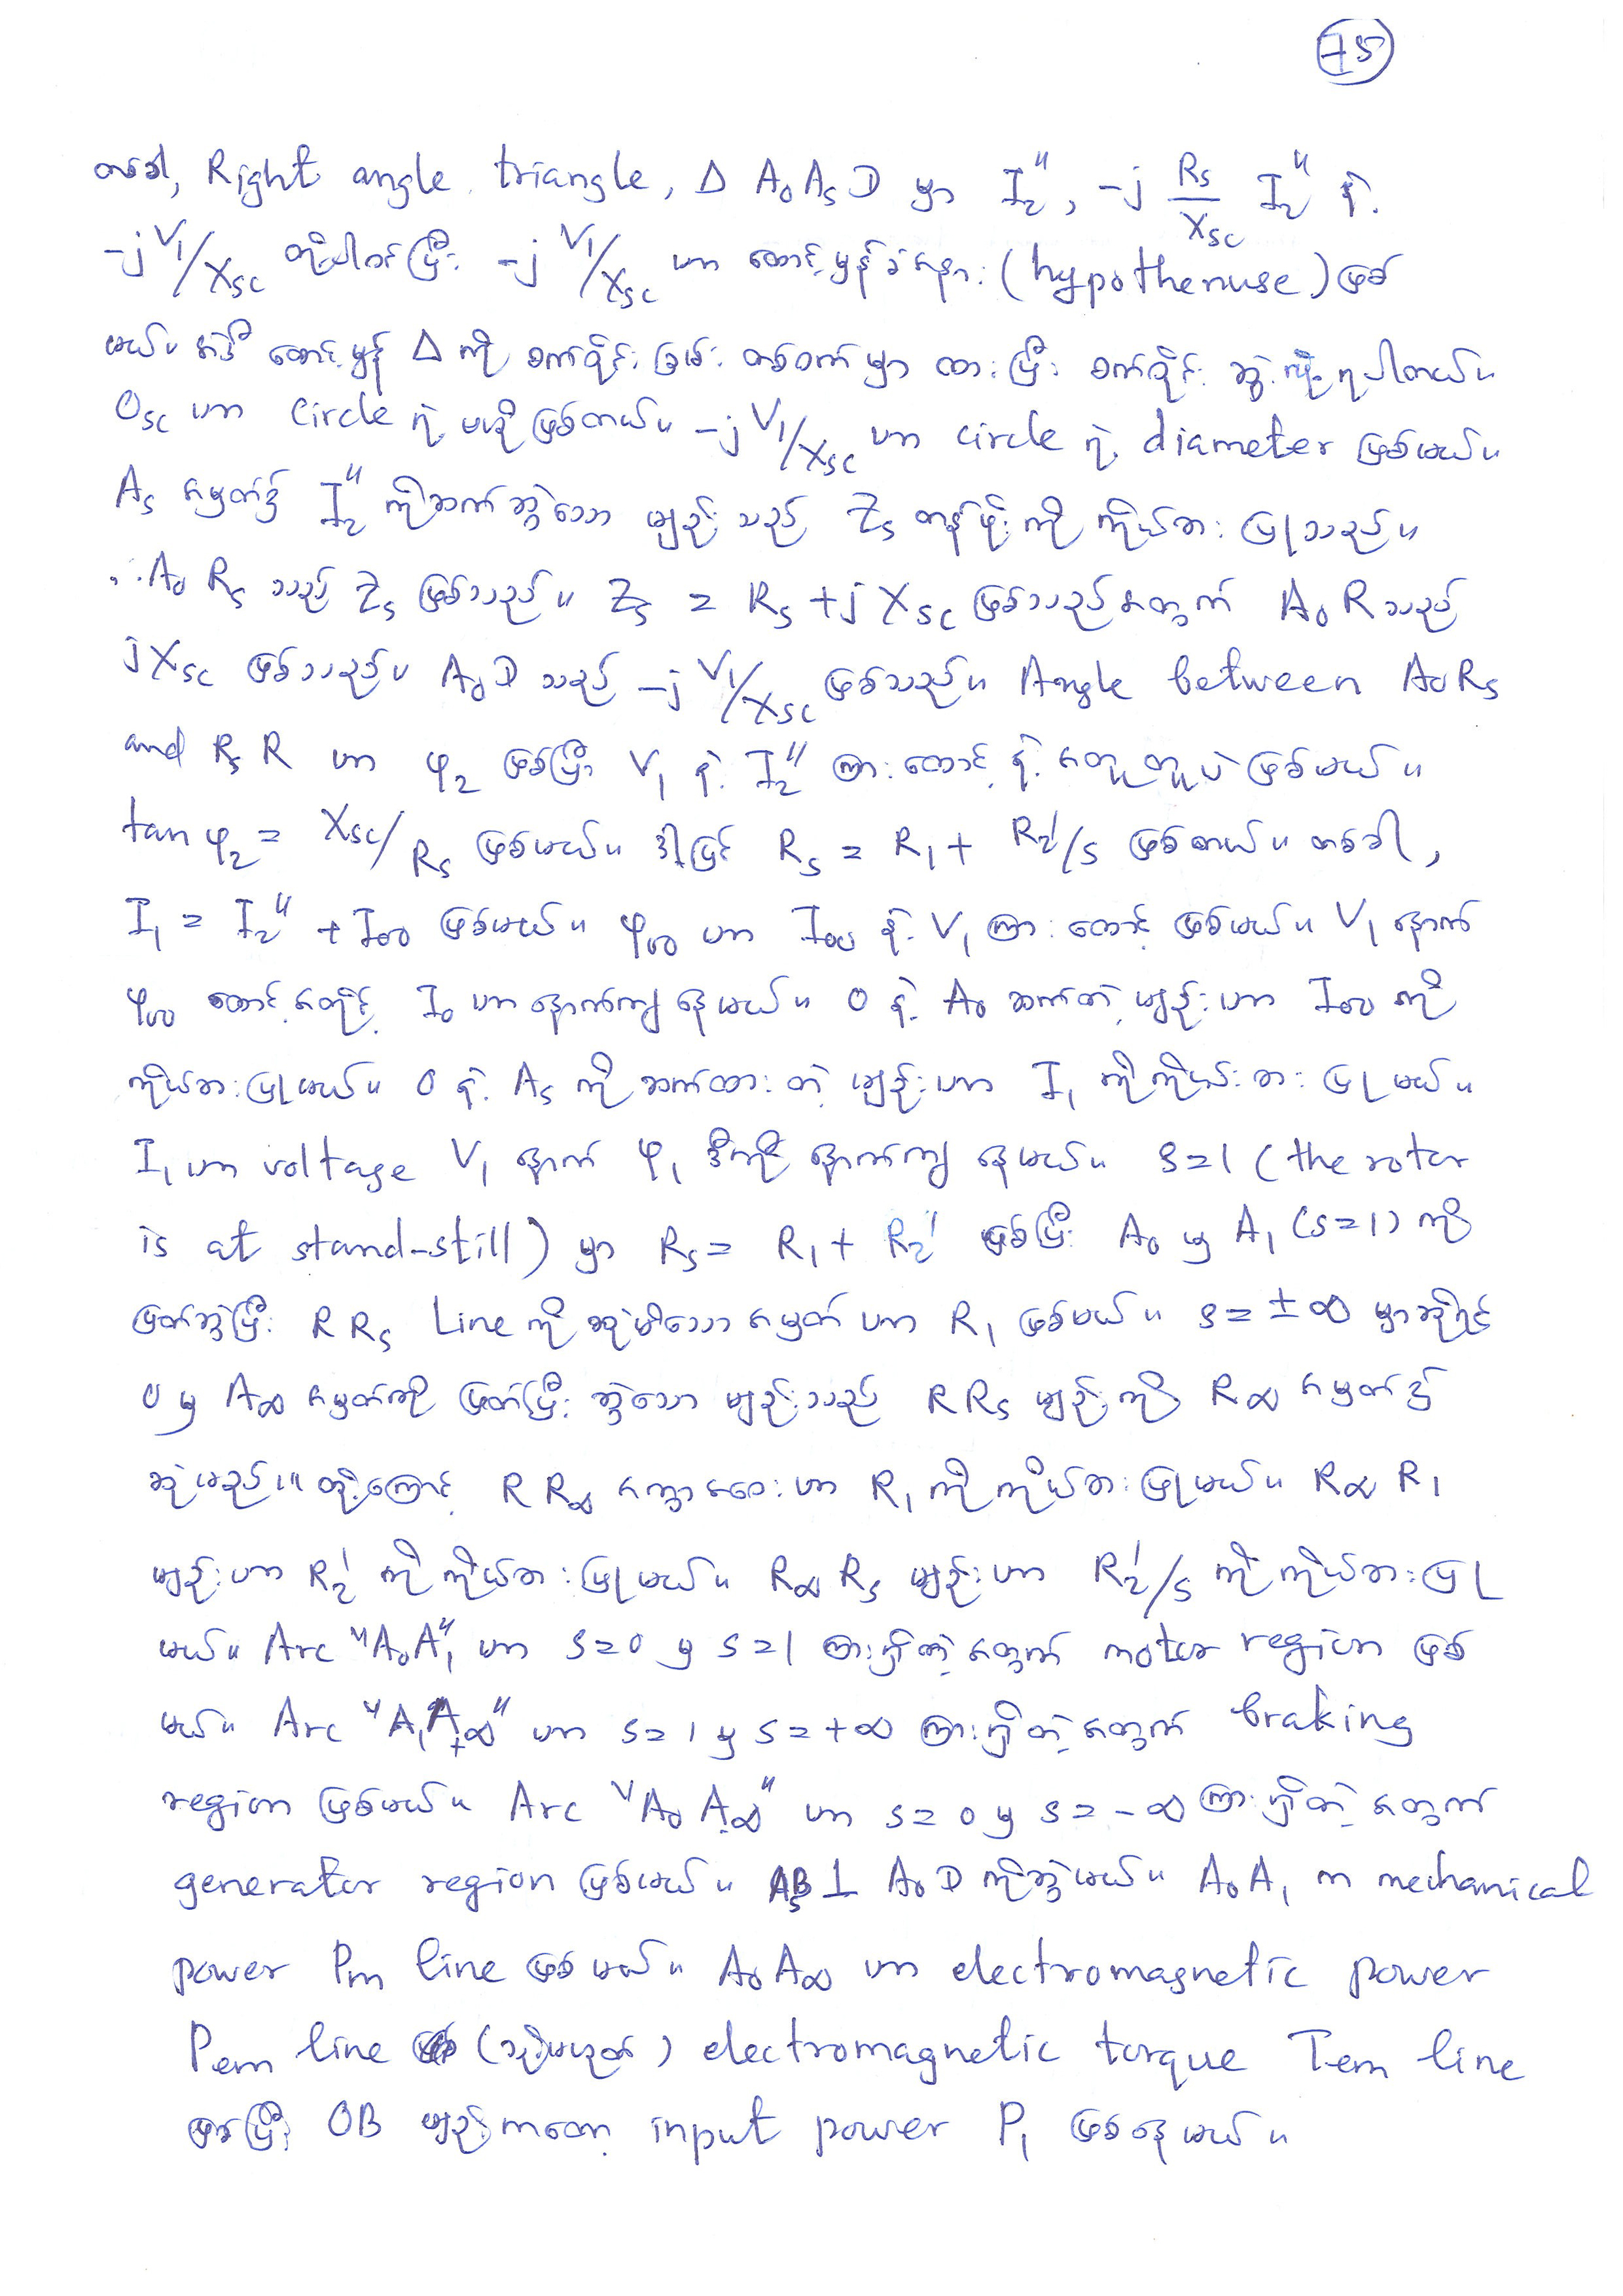 75
တစ်ခါ, Right angle triangle, Δ A₀ A_S D မှာ I₂'', -j R_S/X_SC I₂'' နဲ့
-j V₁/X_SC တို့ပါဝင်ပြီး -j V₁/X_SC ဟာ ထောင့်မှန်ခံအနား (hypothenuse) ဖြစ်
မယ်။ အဲဒီ ထောင့်မှန် Δ ကို စက်ဝိုင်းခြမ်း တစ်ဝက်မှာ ထားပြီး စက်ဝိုင်း ဆွဲလို့ရပါတယ်။
O_SC ဟာ circle ရဲ့ ဗဟိုဖြစ်တယ်။ -j V₁/X_SC ဟာ circle ရဲ့ diameter ဖြစ်မယ်။
A_S အမှတ်၌ I₂'' ကိုဆက်ဆွဲသော မျဉ်းသည် Z_S တန်ဖိုးကို ကိုယ်စားပြုသည်။
∴ A₀ R_S သည် Z_S ဖြစ်သည်။ Z_S = R_S + j X_SC ဖြစ်သည့်အတွက် A₀ R သည်
j X_SC ဖြစ်သည်။ A₀ D သည် -j V₁/X_SC ဖြစ်သည်။ Angle between A₀ R_S
and R_S R ဟာ φ₂ ဖြစ်ပြီး V₁ နဲ့ I₂'' ကြားထောင့်နဲ့ အတူတူပဲဖြစ်မယ်။
tan φ₂ = X_SC/R_S ဖြစ်မယ်။ ဒါ့ပြင် R_S = R₁ + R₂'/S ဖြစ်တယ်။ တစ်ခါ,
I₁ = I₂'' + I₀₀ ဖြစ်မယ်။ φ₀₀ ဟာ I₀₀ နဲ့ V₁ ကြားထောင့် ဖြစ်မယ်။ V₁ နောက်
φ₀₀ ထောင့်အတိုင်း I₀ ဟာနောက်ကျနေမယ်။ 0 နဲ့ A₀ ဆက်တဲ့မျဉ်းဟာ I₀₀ ကို
ကိုယ်စားပြုမယ်။ 0 နဲ့ A_S ကို ဆက်ထားတဲ့ မျဉ်းဟာ I₁ ကိုကိုယ်စားပြုမယ်။
I₁ ဟာ voltage V₁ နောက် φ₁ ဒီဂရီ နောက်ကျနေမယ်။ S=1 (the rotor
is at stand-still) မှာ R_S = R₁ + R₂' ဖြစ်ပြီး A₀ မှ A₁ (S=1) ကို
ဖြတ်ဆွဲပြီး R R_S Line ကိုဆုံမိသောအမှတ်ဟာ R₁ ဖြစ်မယ်။ S = ± ∞ မှာဆိုရင်
0 မှ A∞ အမှတ်ကို ဖြတ်ပြီး ဆွဲသော မျဉ်းသည် R R_S မျဉ်းကို R∞ အမှတ်၌
ဆုံမည်။ ထို့ကြောင့် R R∞ အကွာအဝေးဟာ R₁ ကိုကိုယ်စားပြုမယ်။ R∞ R₁
မျဉ်းဟာ R₂' ကိုကိုယ်စားပြုမယ်။ R∞ R_S မျဉ်းဟာ R₂'/S ကိုကိုယ်စားပြု
မယ်။ Arc "A₀A₁" ဟာ S=0 မှ S=1 ကြားရှိတဲ့အတွက် motor region ဖြစ်
မယ်။ Arc "A₁A₊∞" ဟာ S=1 မှ S=+∞ ကြားရှိတဲ့အတွက် braking
region ဖြစ်မယ်။ Arc "A₀ A₋∞" ဟာ S=0 မှ S=-∞ ကြားရှိတဲ့အတွက်
generator region ဖြစ်မယ်။ A_SB ⊥ A₀ D ကိုဆွဲမယ်။ A₀ A₁ က mechanical
power Pm line ဖြစ်မယ်။ A₀ A∞ ဟာ electromagnetic power
Pem line (သို့မဟုတ်) electromagnetic torque Tem line
ဖြစ်ပြီး OB မျဉ်းကတော့ input power P₁ ဖြစ်နေမယ်။